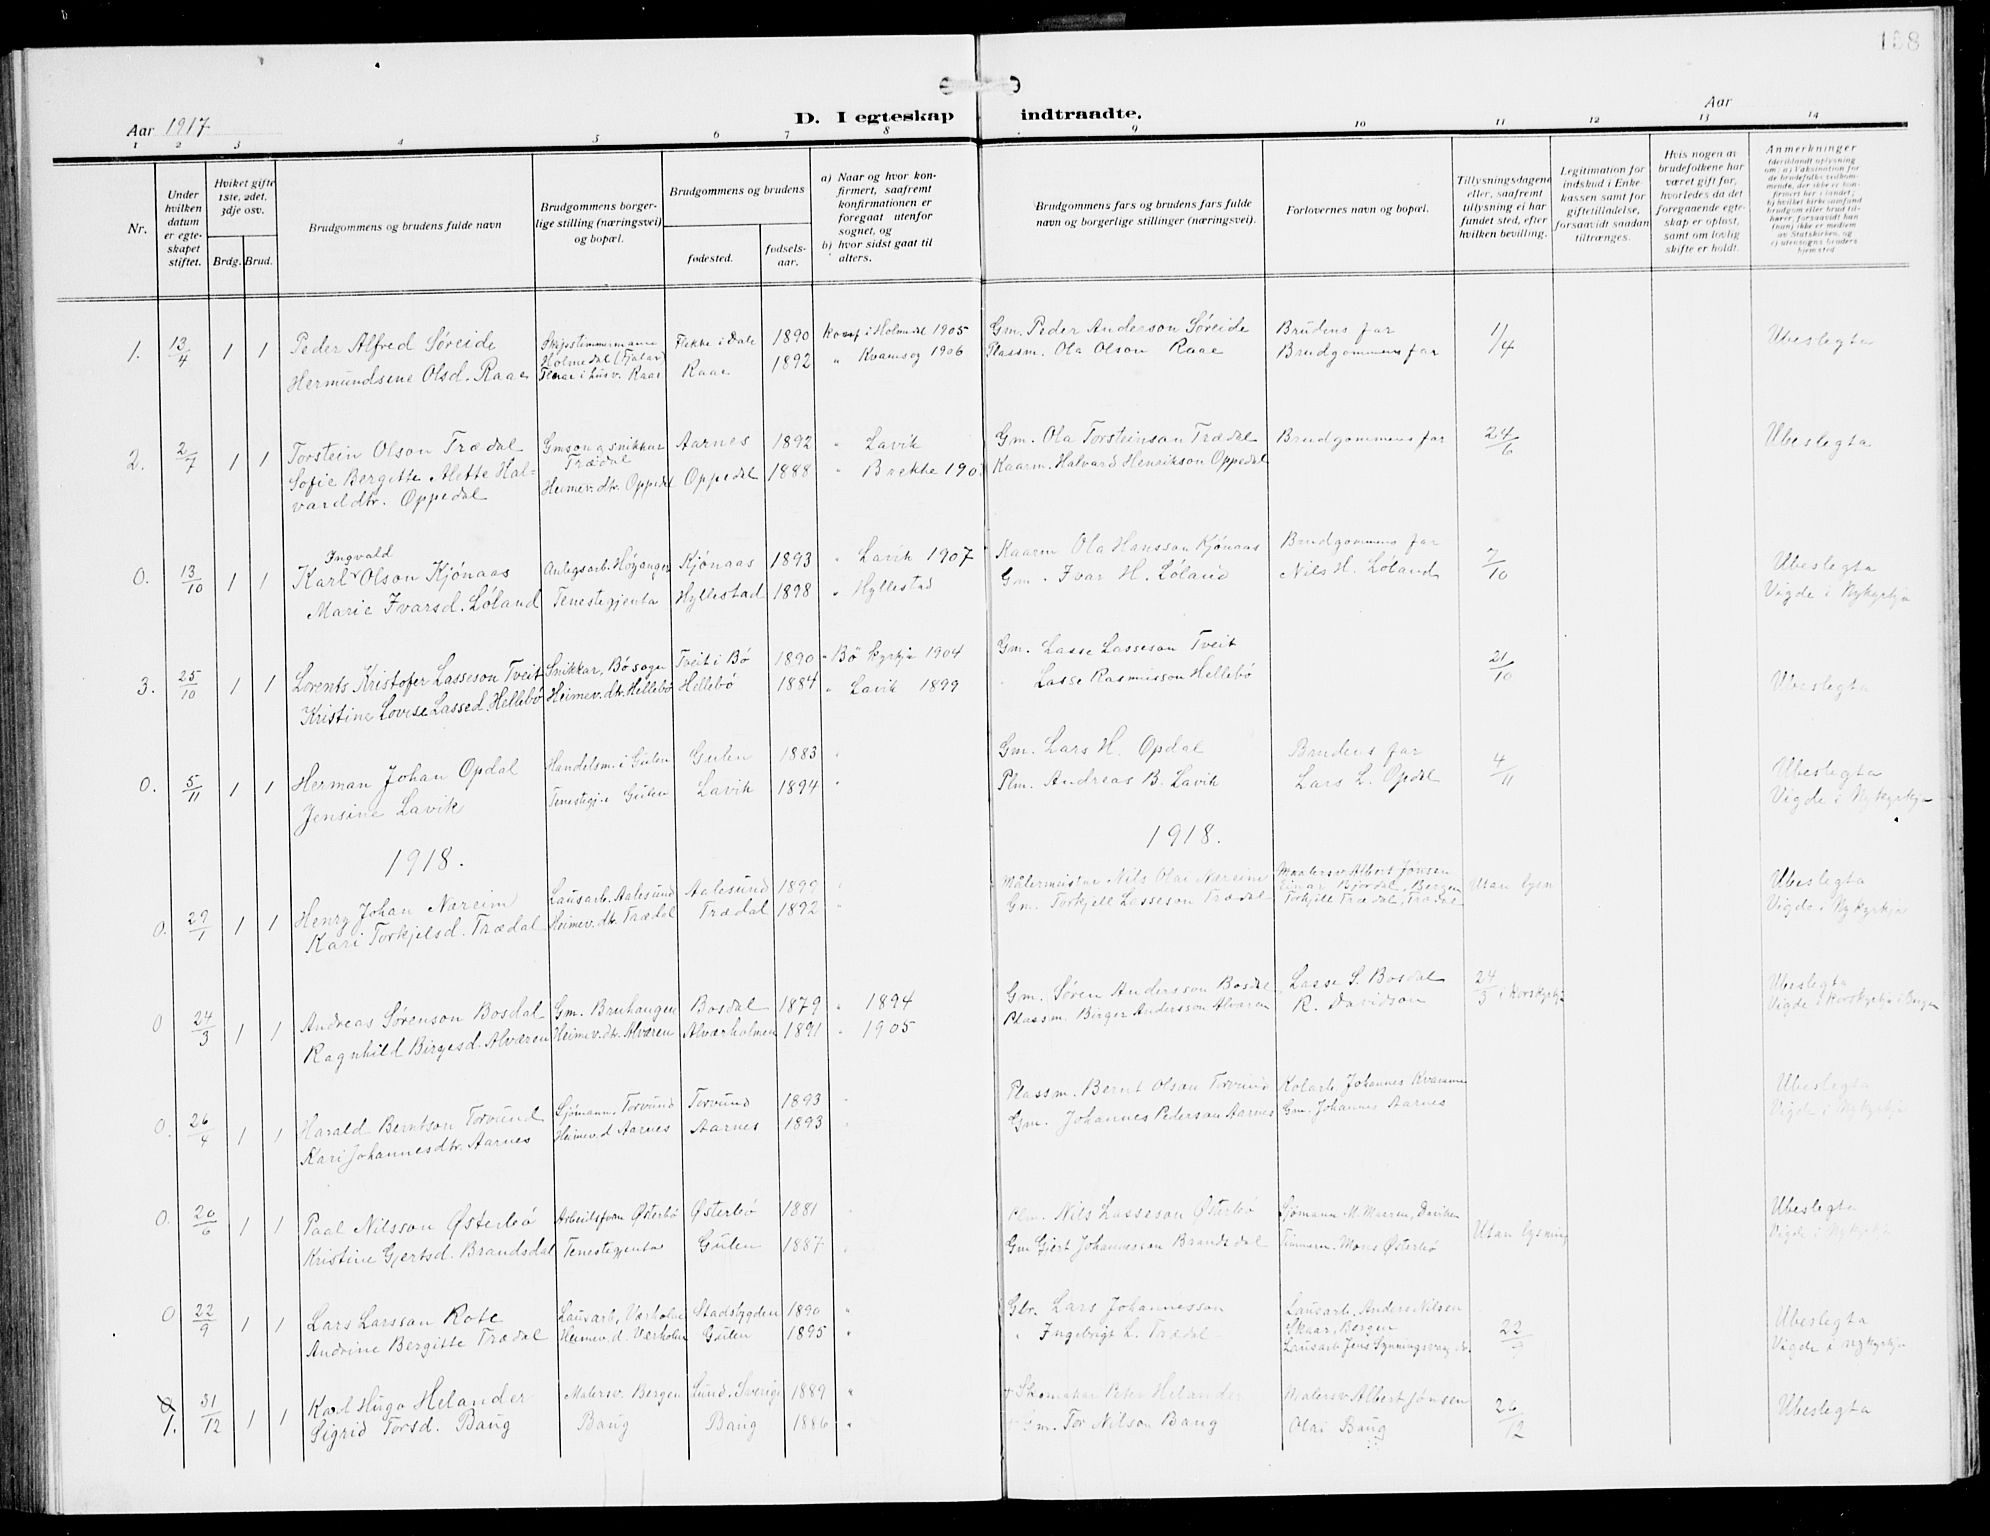 158
Aar 1917
D. I egteskap indtraadte.
Aar
1 2 3 4 5 6 7 8 9 10 11 12 13 14
Nr.
Under hvilken datum er egteskapet stiftet.
Hvilket gifte 1ste, 2det, 3dje osv.
Brdg. Brud.
Brudgommens og brudens fulde navn
Brudgommens borgerlige stilling (næringsvei) og bopæl.
Brudgommens og brudens
fødested.
fødselsaar.
a) Naar og hvor konfirmert, saafremt konfirmationen er foregaat utenfor sognet, og
b) hvor sidst gaat til alters.
Brudgommens fars og brudens fars fulde navn og borgerlige stillinger (næringsvei).
Forlovernes navn og bopæl.
Tillysningsdagene eller, saafremt tillysning ei har fundet sted, efter hvilken bevilling.
Legitimation for indskud i Enkekassen samt for giftetilladelse, forsaavidt saadan tiltrænges.
Hvis nogen av brudefolkene har været gift før, hvorledes da det foregaaende egteskap er opløst, samt om lovlig skifte er holdt.
Anmerkninger
1. 13/4 1 1 Peder Alfred Søreide Flekke i Dale 1890 Konf i Holmedal 1905 Gm. Peder Anderson Søreide Brudens far 1/4 Ubeslegta
Hermundsene Olsd. Raae Raae 1892 " Kvamsøy 1906 Plassm. Ola Olson Raae Brudgommens far
2. 2/7 1 1 Torstein Olson Trædal Gmson og snikkar Trædal Aarnes 1892 " Lavik Gm. Ola Torsteinson Trædal Brudgommens far 24/6 Ubeslegta
Sofie Bergitte Alette Halvarddtr. Oppedal Heimev. dtr. Oppedal Oppedal 1888 " Brekke 190 Kaarm. Halvard Henrikson Oppedal
0. 13/10 1 1 Karl Ingvald Olson Kjønaas Anlegsarb. Høyanger Kjønaas 1893 " Lavik 1907 Kaarm Ola Hansson Kjønaas Brudgommens far 7/10 Ubeslegta
Marie Ivarsd. Løland Tenestegjenta Hyllestad 1898 " Hyllestad Gm. Ivar H. Løland Nils H. Løland Vigde i Nykyrkja
3. 25/10 1 1 Lorents Kristofer Lasseson Tveit Snikkar, Bø sogn Tveit i Bø 1890 " Bø kyrkja 1904 Gm. Lasse Lasseson Tveit 21/10 Ubeslegta
Kristine Lovise Lassed. Hellebø Heimev. dtr. Hellebø Hellebø 1884 " Lavik 1899 Lasse Rasmusson Hellebø
0. 5/11 1 1 Herman Johan Opdal Handelsm. i Gulen Gulen 1883 " Gm. Lars H. Opdal Brudens far 4/11 Ubeslegta
Jensine Lavik Tenestegje Gulen Lavik 1894 " Plm. Andreas B. Lavik Lars L. Opdal Vigde i Nykyrkja
1918. 1918.
0. 29/1 1 1 Henry Johan Næreim Lausarb. Aalesund Aalesund 1899 " Målermeistar Nils Olai Næreim Malersv. Albert Jønsen Einar Bjordal, Bergen Utan lysn Ubeslegta
Kari Torkjelsd. Trædal Heimev. dtr. Trædal Trædal 1892 " Gm. Torkjell Lasseson Trædal Torkjell Trædal, Trædal Vigde i Nykyrkja
0 24/3 1 1 Andreas Sørenson Bosdal Gm. Bruhaugen Bosdal 1879 " 1894 Gm. Søren Andersson Bosdal Lasse S. Bosdal 24/3 i Korskyrkja Ubeslegta
Ragnhild Birgesd. Alværen Heimev. dtr. Alværen Alværholmen 1891 " 1905 Plassm. Birger Andersson Alværen R. Davidson Vigde i Korskyrkja i Bergen
0. 26/4 1 1 Harald Berntson Torvund Sjømann, Torvund Torvund 1893 " Plassm. Bernt Olson Torvund Johannes Kvamme Ubeslegta
Kari Johannesdtr. Aarnes Heimev. d Aarnes Aarnes 1893 " Gm. Johannes Pederson Aarnes Gm. Johannes Aarnes Vigde i Nykyrkja
0. 20/6 1 1 Paal Nilsson Østerbø Arbeidsform Østerbø Østerbø 1881 " Plm. Nils Lasseson Østerbø Sjømann M. Marren, Daviken Utan lysning Ubeslegta
Kristine Gjertsd. Brandsdal Tenestegjenta Gulen 1887 " Gm Gjert Johannesson Brandsdal Mons Østerbø Vigde i Nykyrkja
0 22/9 1 1 Lars Larsson Rote Lausarb. Værholm Stadsbygden 1890 " Gbr. Lars Johannesson Lausarb. Anders Nilsen Skaar, Bergen 22/9 Ubeslegta
Andrine Bergitte Trædal Heimev. d. Værholm Gulen 1895 " " Ingebrigt L. Trædal Lausarb. Jens Vigde i Nykyrkja
1. 31/12 1 1 Karl Hugo Helander Malersv. Bergen Lund, Sverige 1889 " + Skomakar Peter Helander Malersv. Albert Jønsen 26/12 Ubeslegta
Sigrid Torsd. Baug Baug Baug 1886 " + Gm. Tor Nilson Baug Olai Baug